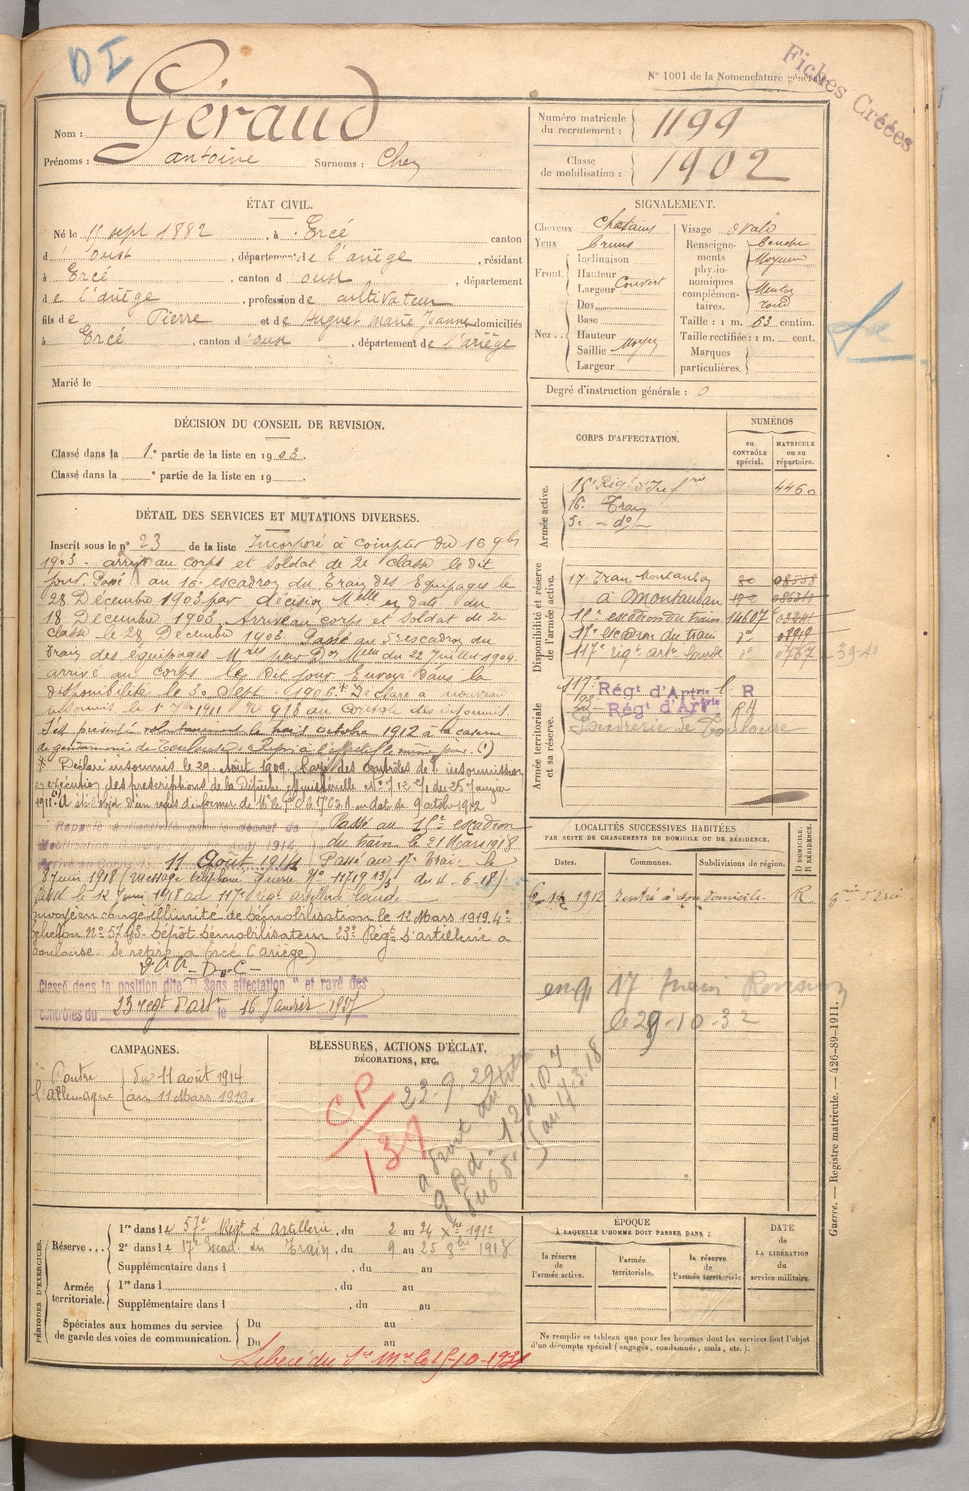 DI
N° 1001 de la Nomenclature générale.
Fiches Créées
Nom : Géraud
Prénoms : antoine Surnoms : Chey
Numéro matricule du recrutement : 1199
Classe de mobilisation : 1902
ÉTAT CIVIL.
Né le 11 sept 1882, à Ercé canton
d'oust, département de l'ariège, résidant
à Ercé, canton d oust, département
de l'ariège, profession de cultivateur
fils de Pierre et de Huguet Marie Jeanne domiciliés
à Ercé, canton d'oust, département de l'ariège
Marié le
SIGNALEMENT.
Cheveux Chatains
Yeux bruns
Front : Inclinaison
Hauteur
Largeur Couvert
Nez : Dos
Base
Hauteur
Saillie Moyen
Largeur
Visage ovale
Renseignements physionomiques complémentaires. bouche Moyenne Menton rond
Taille : 1 m. 63 centim.
Taille rectifiée : 1 m. cent.
Marques particulières.
Degré d'instruction générale : 0
DÉCISION DU CONSEIL DE REVISION.
Classé dans la 1e partie de la liste en 1903.
Classé dans la ° partie de la liste en 19
CORPS D'AFFECTATION.
NUMÉROS
au CONTRÔLE spécial.
MATRICULE ou au répertoire.
Armée active.
15e Régt d'Infrie 4460
16e Train
5e - do -
Disponibilité et réserve de l'armée active.
17e Train Montauban
à Montauban
11e escadron du train 14607
17e escadron du train do
117e régt artie lourde do
Armée territoriale et sa réserve.
117e Régt d'Artrie l. R
Régt d'Artrie
Poudrerie de Toulouse
DÉTAIL DES SERVICES ET MUTATIONS DIVERSES.
Inscrit sous le n° 23 de la liste Incorporé à compter du 16 9bre
1903. arrivé au corps et soldat de 2e classe le dit
jour. Passé au 16e escadron du Train des Equipages le
28 Décembre 1903 par décision Mlle en date du
18 Décembre 1903. Arrivé au corps et soldat de 2e
classe le 28 Décembre 1903. Passé au 5e escadron du
Train des équipages Mres par Don Mlle du 22 Juillet 1904.
arrivé au corps le dit jour. Envoyé dans la
disponibilité le 30 Sept. 1906 * Déclaré a nouveau
insoumis le 1911 N° 918 du contrôle des insoumis
S'est présenté volontairement le trois octobre 1912 à la caserne
de gendarmerie de Toulouse
* Déclaré insoumis le 29 Août 1909. Rayé des contrôles de l'insoumission
en exécution des prescriptions de la Dépêche Ministérielle N° 712 2/1 du 25 Janvier
1911. A été l'objet d'un refus d'informer de M. le Gal Ct le 17e C.A. en date du 9 octobre 1912
Rappelé à l'activité
Mobilisation
11 Août 1914
Passé au 15e escadron
du train le 21 Mars 1918
Passé au 17e Train le
8 Juin 1918 (Message téléphoné Guerre N° 11719 du 4-6-18)
Passé le 12 Juin 1918 au 117e régt artillerie lourde
Envoyé en congé illimité de démobilisation le 12 Mars 1919. 4e
échelon N° Dépôt démobilisateur 23e Régt d'artillerie a
Toulouse se retire a Ercé (Ariège)
Classé dans la position dite "Sans affectation" et rayé des
contrôles du 23 régt d'artie le 16 Janvier 1927
LOCALITÉS SUCCESSIVES HABITÉES
PAR SUITE DE CHANGEMENTS DE DOMICILE OU DE RÉSIDENCE.
Dates. Communes. Subdivisions de région. D DOMICILE. R RÉSIDENCE.
1912 rentré à son domicile. R
17
le 29-10-32
CAMPAGNES.
Contre l'allemagne du 11 août 1914 au 11 Mars 1919.
BLESSURES, ACTIONS D'ÉCLAT,
DÉCORATIONS, ETC.
CP/137
PÉRIODES D'EXERCICES.
Réserve
1re dans le 57e Régt d'Artillerie, du 2 au 24 Xbre 1912
2e dans le 17e Escad. du Train, du 9 au 25 8bre 1913
Supplémentaire dans l , du au
Armée territoriale.
1re dans l , du au
Supplémentaire dans l , du au
Spéciales aux hommes du service de garde des voies de communication.
Du au
Du au
ÉPOQUE
À LAQUELLE L'HOMME DOIT PASSER DANS :
la réserve de l'armée active.
l'armée territoriale.
la réserve de l'armée territoriale
DATE DE LA LIBÉRATION du service militaire.
Ne remplir ce tableau que pour les hommes dont les services font l'objet
d'un décompte spécial (engagés, condamnés, omis, etc.).
Libéré du Sce Mre le 15-10-1931
Guerre. — Registre matricule. — 426-89-1911.